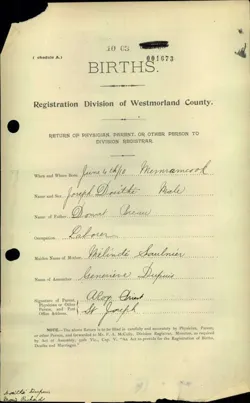 ( Schedule A.)
10 62
001673
BIRTHS.
Registration Division of Westmorland County.
RETURN OF PHYSICIAN, PARENT, OR OTHER PERSON TO
DIVISION REGISTRAR.
When and Where Born, June Memramcook
Name and Sex, Joseph Male
Name of Father,
Occupation, Laborer
Maiden Name of Mother, Melinda Saulnier
Name of Accoucheur, Genevieve Dupuis
Signature of Parent,
Physician or Other
Person, and Post
Office Address.
St Joseph
NOTE.—The above Return is to be filled in carefully and accurately by Physician, Parent,
or other Person, and forwarded to Division Registrar, Moncton, as required
by Act of Assembly, "An Act to provide for the Registration of Births,
Deaths and Marriages."
Dupuis